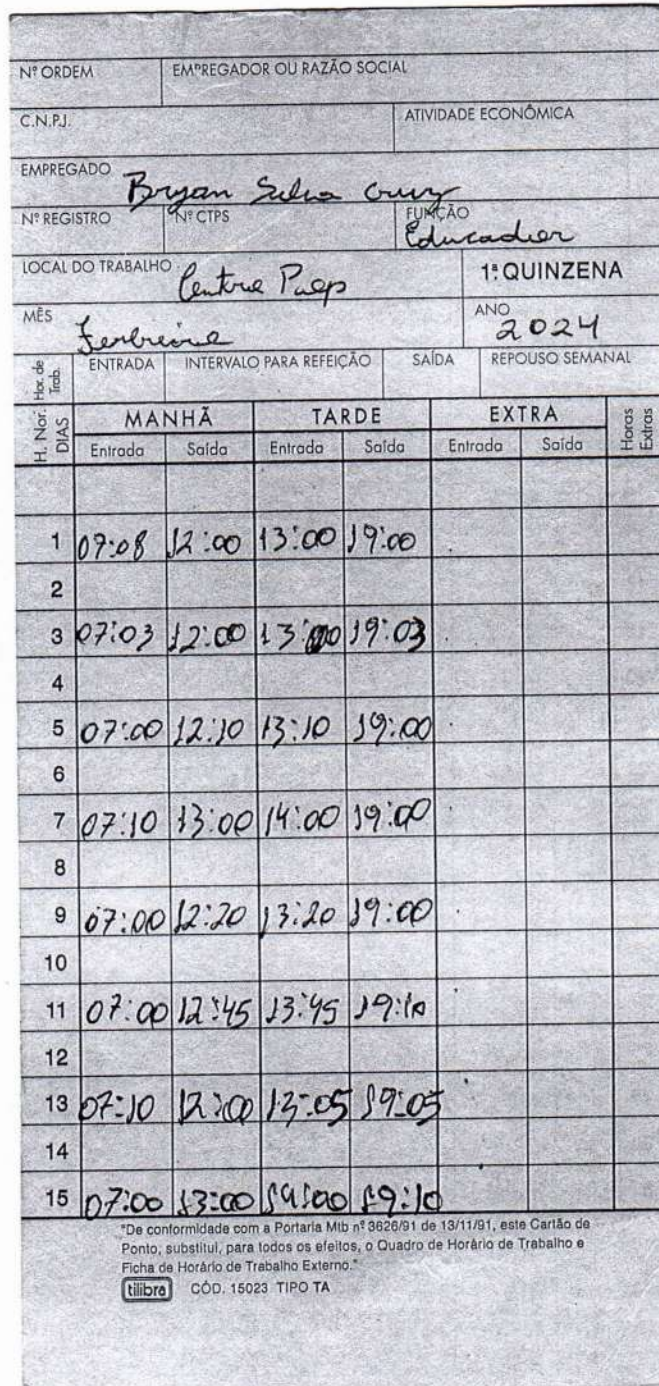 Nº ORDEM EMPREGADOR OU RAZÃO SOCIAL
C.N.P.J. ATIVIDADE ECONÔMICA
EMPREGADO Bryan Silva Cruz
Nº REGISTRO Nº CTPS FUNÇÃO Educador
LOCAL DO TRABALHO Centro 1ª QUINZENA
MÊS ANO 2024
Hor. de Trab. ENTRADA INTERVALO PARA REFEIÇÃO SAÍDA REPOUSO SEMANAL
H. Nor. DIAS MANHÃ TARDE EXTRA Horas Extras
Entrada Saída Entrada Saída Entrada Saída
1 07:08 12:00 13:00 19:00
2
3 07:03 12:00 13:00 19:03
4
5 07:00 12:10 13:10 19:00
6
7 07:10 13:00 14:00 19:00
8
9 07:00 12:20 13:20 19:00
10
11 07:00 12:45 13:45 19:10
12
13 07:10 12:00 13:05 19:05
14
15 07:00 13:00 14:00 19:10
"De conformidade com a Portaria Mtb nº 3626/91 de 13/11/91, este Cartão de
Ponto, substitui, para todos os efeitos, o Quadro de Horário de Trabalho e
Ficha de Horário de Trabalho Externo."
tilibra CÓD. 15023 TIPO TA